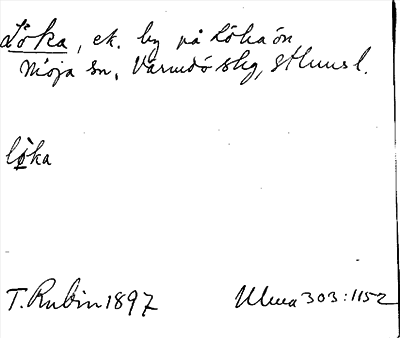 Löka, ek. by på Lökaön
Möja sn, Värmdö skg, Sthms l.
löka
T. Rubin 1897 Ulma 303:1152